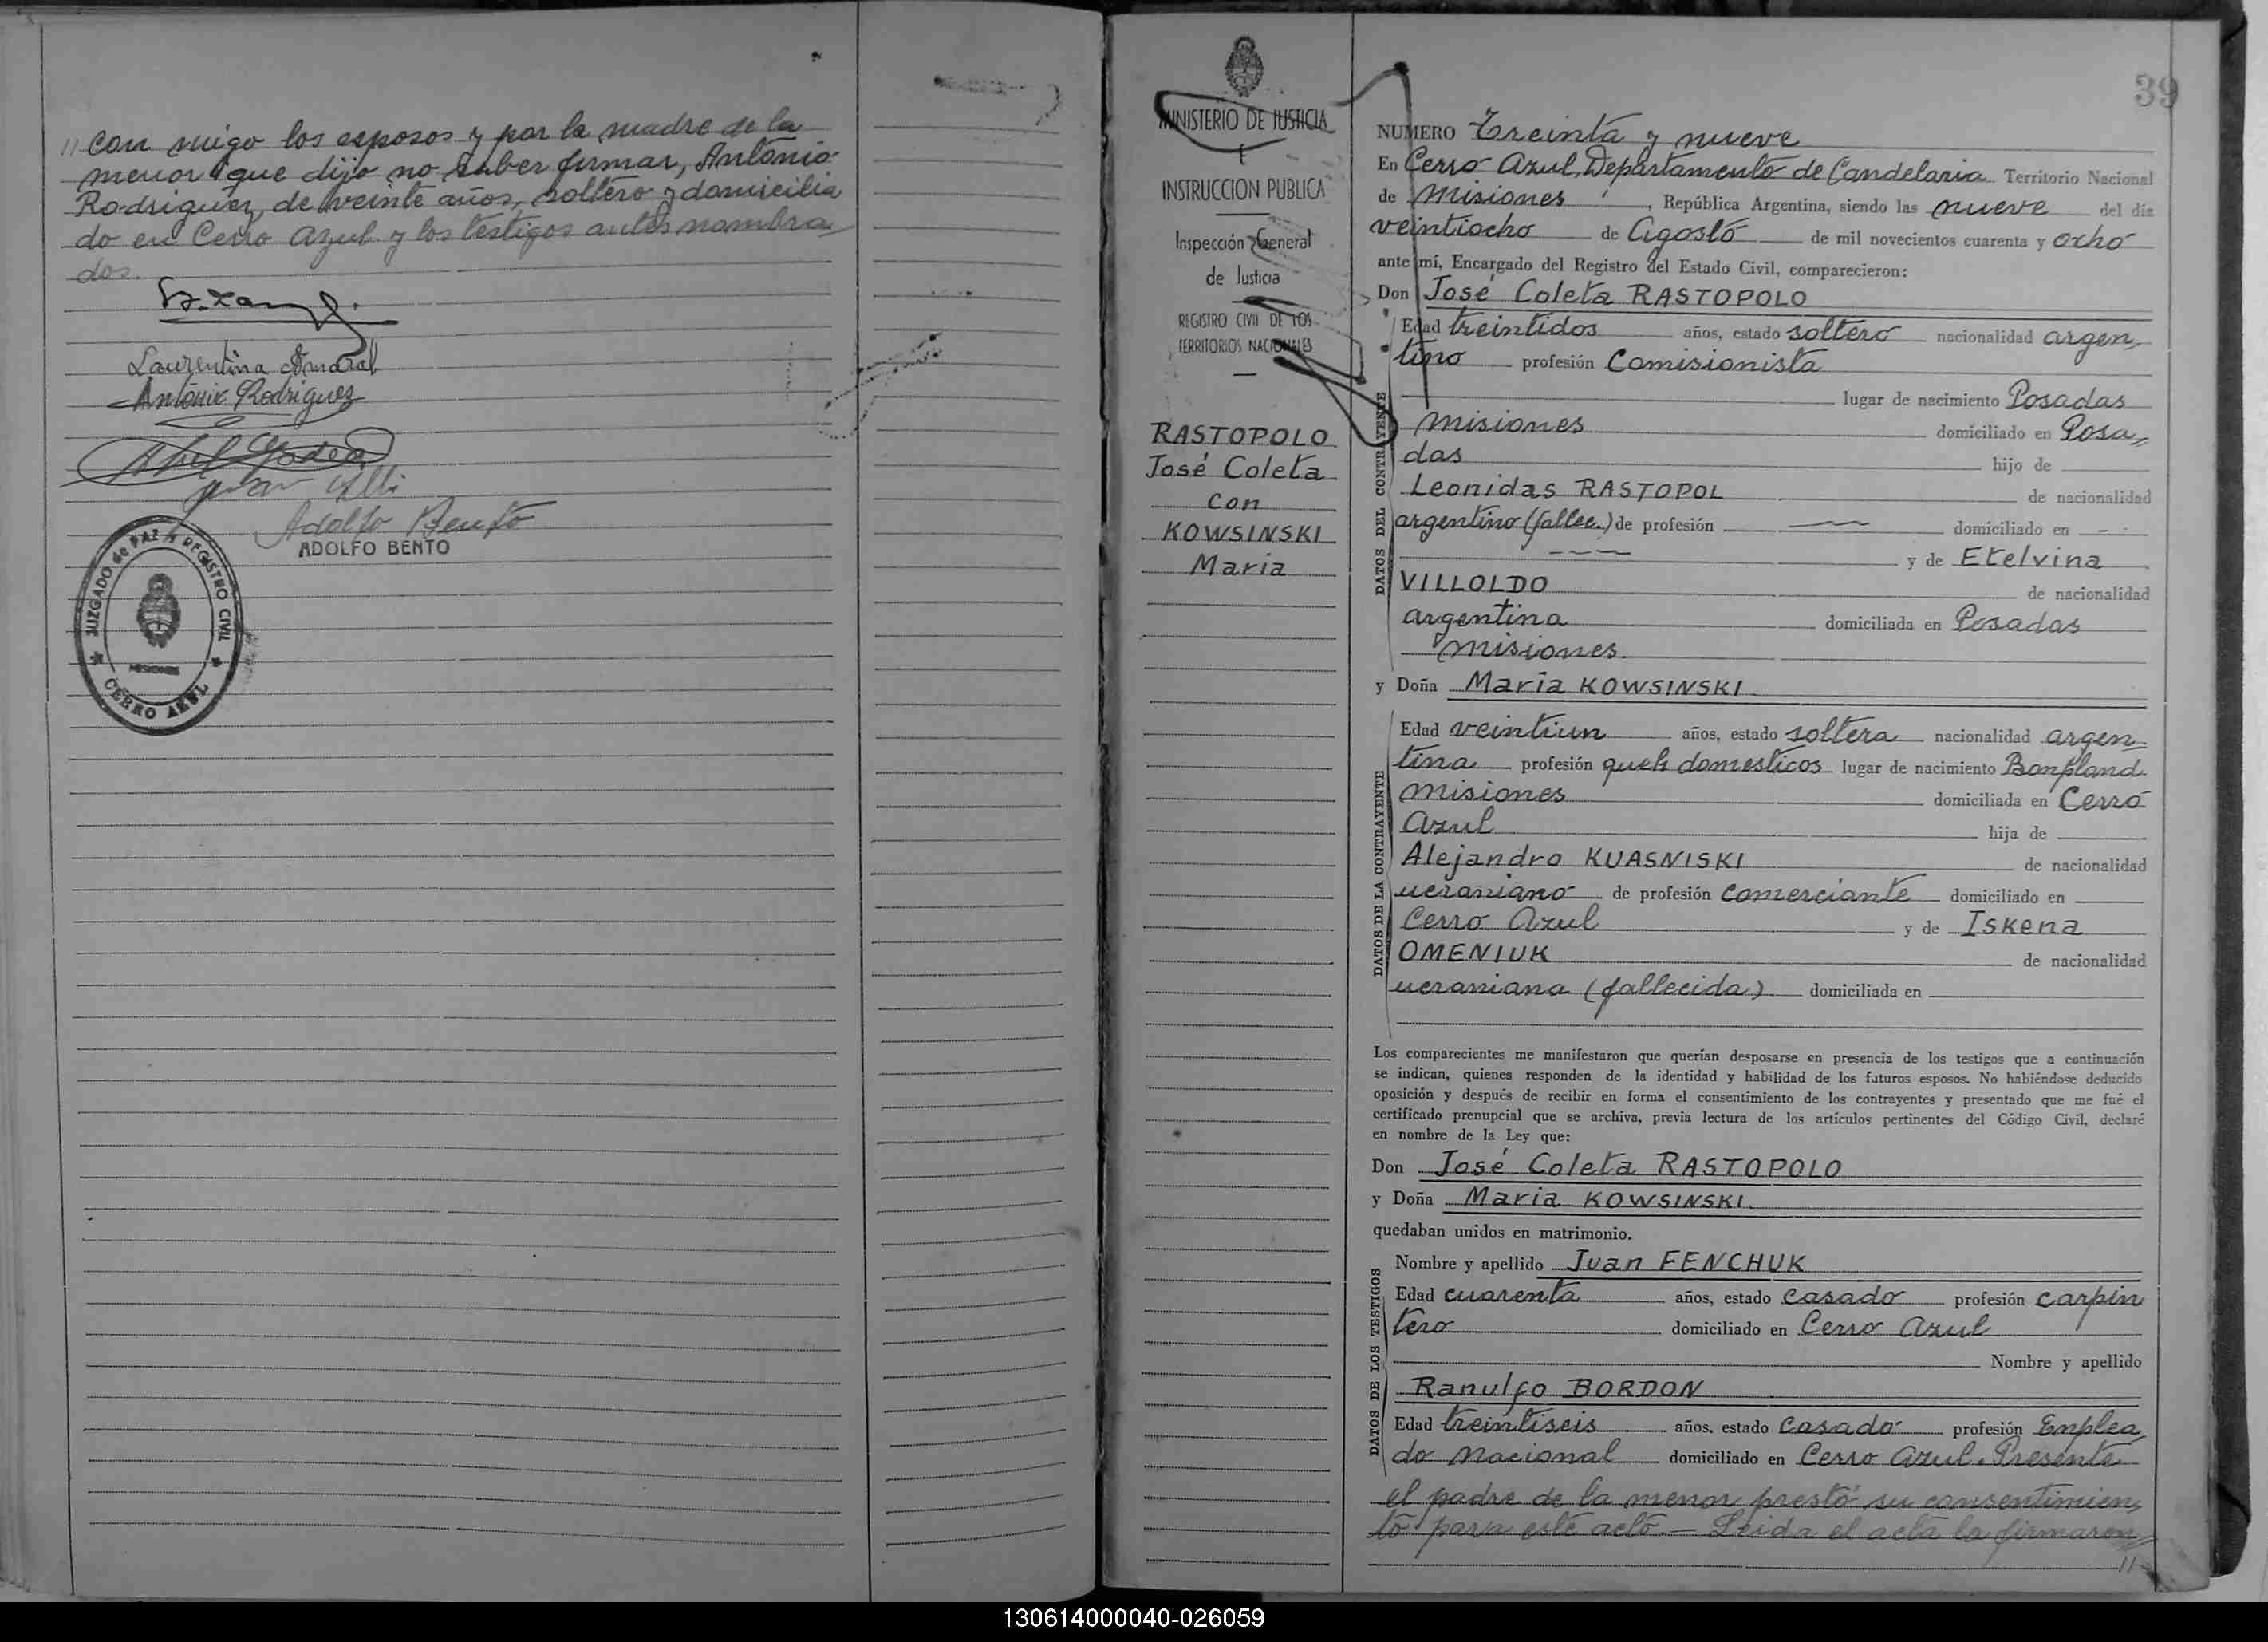 // con migo los esposos y por la madre de la
menor que dijo no saber firmar, Antonio
Rodriguez, de veinte años, soltero y domicilia
do en Cerro Azul y los testigos antes nombra
dos.
Laurentina Amaral
Antonio Rodriguez
Adolfo Bento
ADOLFO BENTO
JUZGADO de PAZ Y REGISTRO CIVIL
MISIONES
CERRO AZUL
MINISTERIO DE JUSTICIA
E
INSTRUCCION PUBLICA
Inspección General
de Justicia
REGISTRO CIVIL DE LOS
TERRITORIOS NACIONALES
RASTOPOLO
José Coleta
con
KOWSINSKI
Maria
39
NUMERO Treinta y nueve
En Cerro Azul, Departamento de Candelaria Territorio Nacional
de Misiones, República Argentina, siendo las nueve del día
veintiocho de Agosto de mil novecientos cuarenta y ocho
ante mí, Encargado del Registro del Estado Civil, comparecieron:
Don José Coleta RASTOPOLO
DATOS DEL CONTRAYENTE
Edad treintidos años, estado soltero nacionalidad argen
tino profesión Comisionista
lugar de nacimiento Posadas
Misiones domiciliado en Posa
das hijo de
Leonidas RASTOPOL de nacionalidad
argentino (fallec.) de profesión domiciliado en
y de Etelvina
VILLOLDO de nacionalidad
argentina domiciliada en Posadas
Misiones.
y Doña Maria KOWSINSKI
DATOS DE LA CONTRAYENTE
Edad veintiun años, estado soltera nacionalidad argen
tina profesión queh domesticos lugar de nacimiento Bonpland
Misiones domiciliada en Cerro
Azul hija de
Alejandro KUASNISKI de nacionalidad
ucraniano de profesión comerciante domiciliado en
Cerro Azul y de Iskena
OMENIUK de nacionalidad
ucraniana (fallecida) domiciliada en
Los comparecientes me manifestaron que querían desposarse en presencia de los testigos que a continuación
se indican, quienes responden de la identidad y habilidad de los futuros esposos. No habiéndose deducido
oposición y después de recibir en forma el consentimiento de los contrayentes y presentado que me fué el
certificado prenupcial que se archiva, previa lectura de los artículos pertinentes del Código Civil, declaré
en nombre de la Ley que:
Don José Coleta RASTOPOLO
y Doña Maria KOWSINSKI.
quedaban unidos en matrimonio.
DATOS DE LOS TESTIGOS
Nombre y apellido Juan FENCHUK
Edad cuarenta años, estado casado profesión carpin
tero domiciliado en Cerro Azul
Nombre y apellido
Ranulfo BORDON
Edad treintiseis años, estado casado profesión Enplea
do Nacional domiciliado en Cerro Azul. Presente
el padre de la menor prestó su consentimien
to para este acto.— Leida el acta la firmaron
//
130614000040-026059